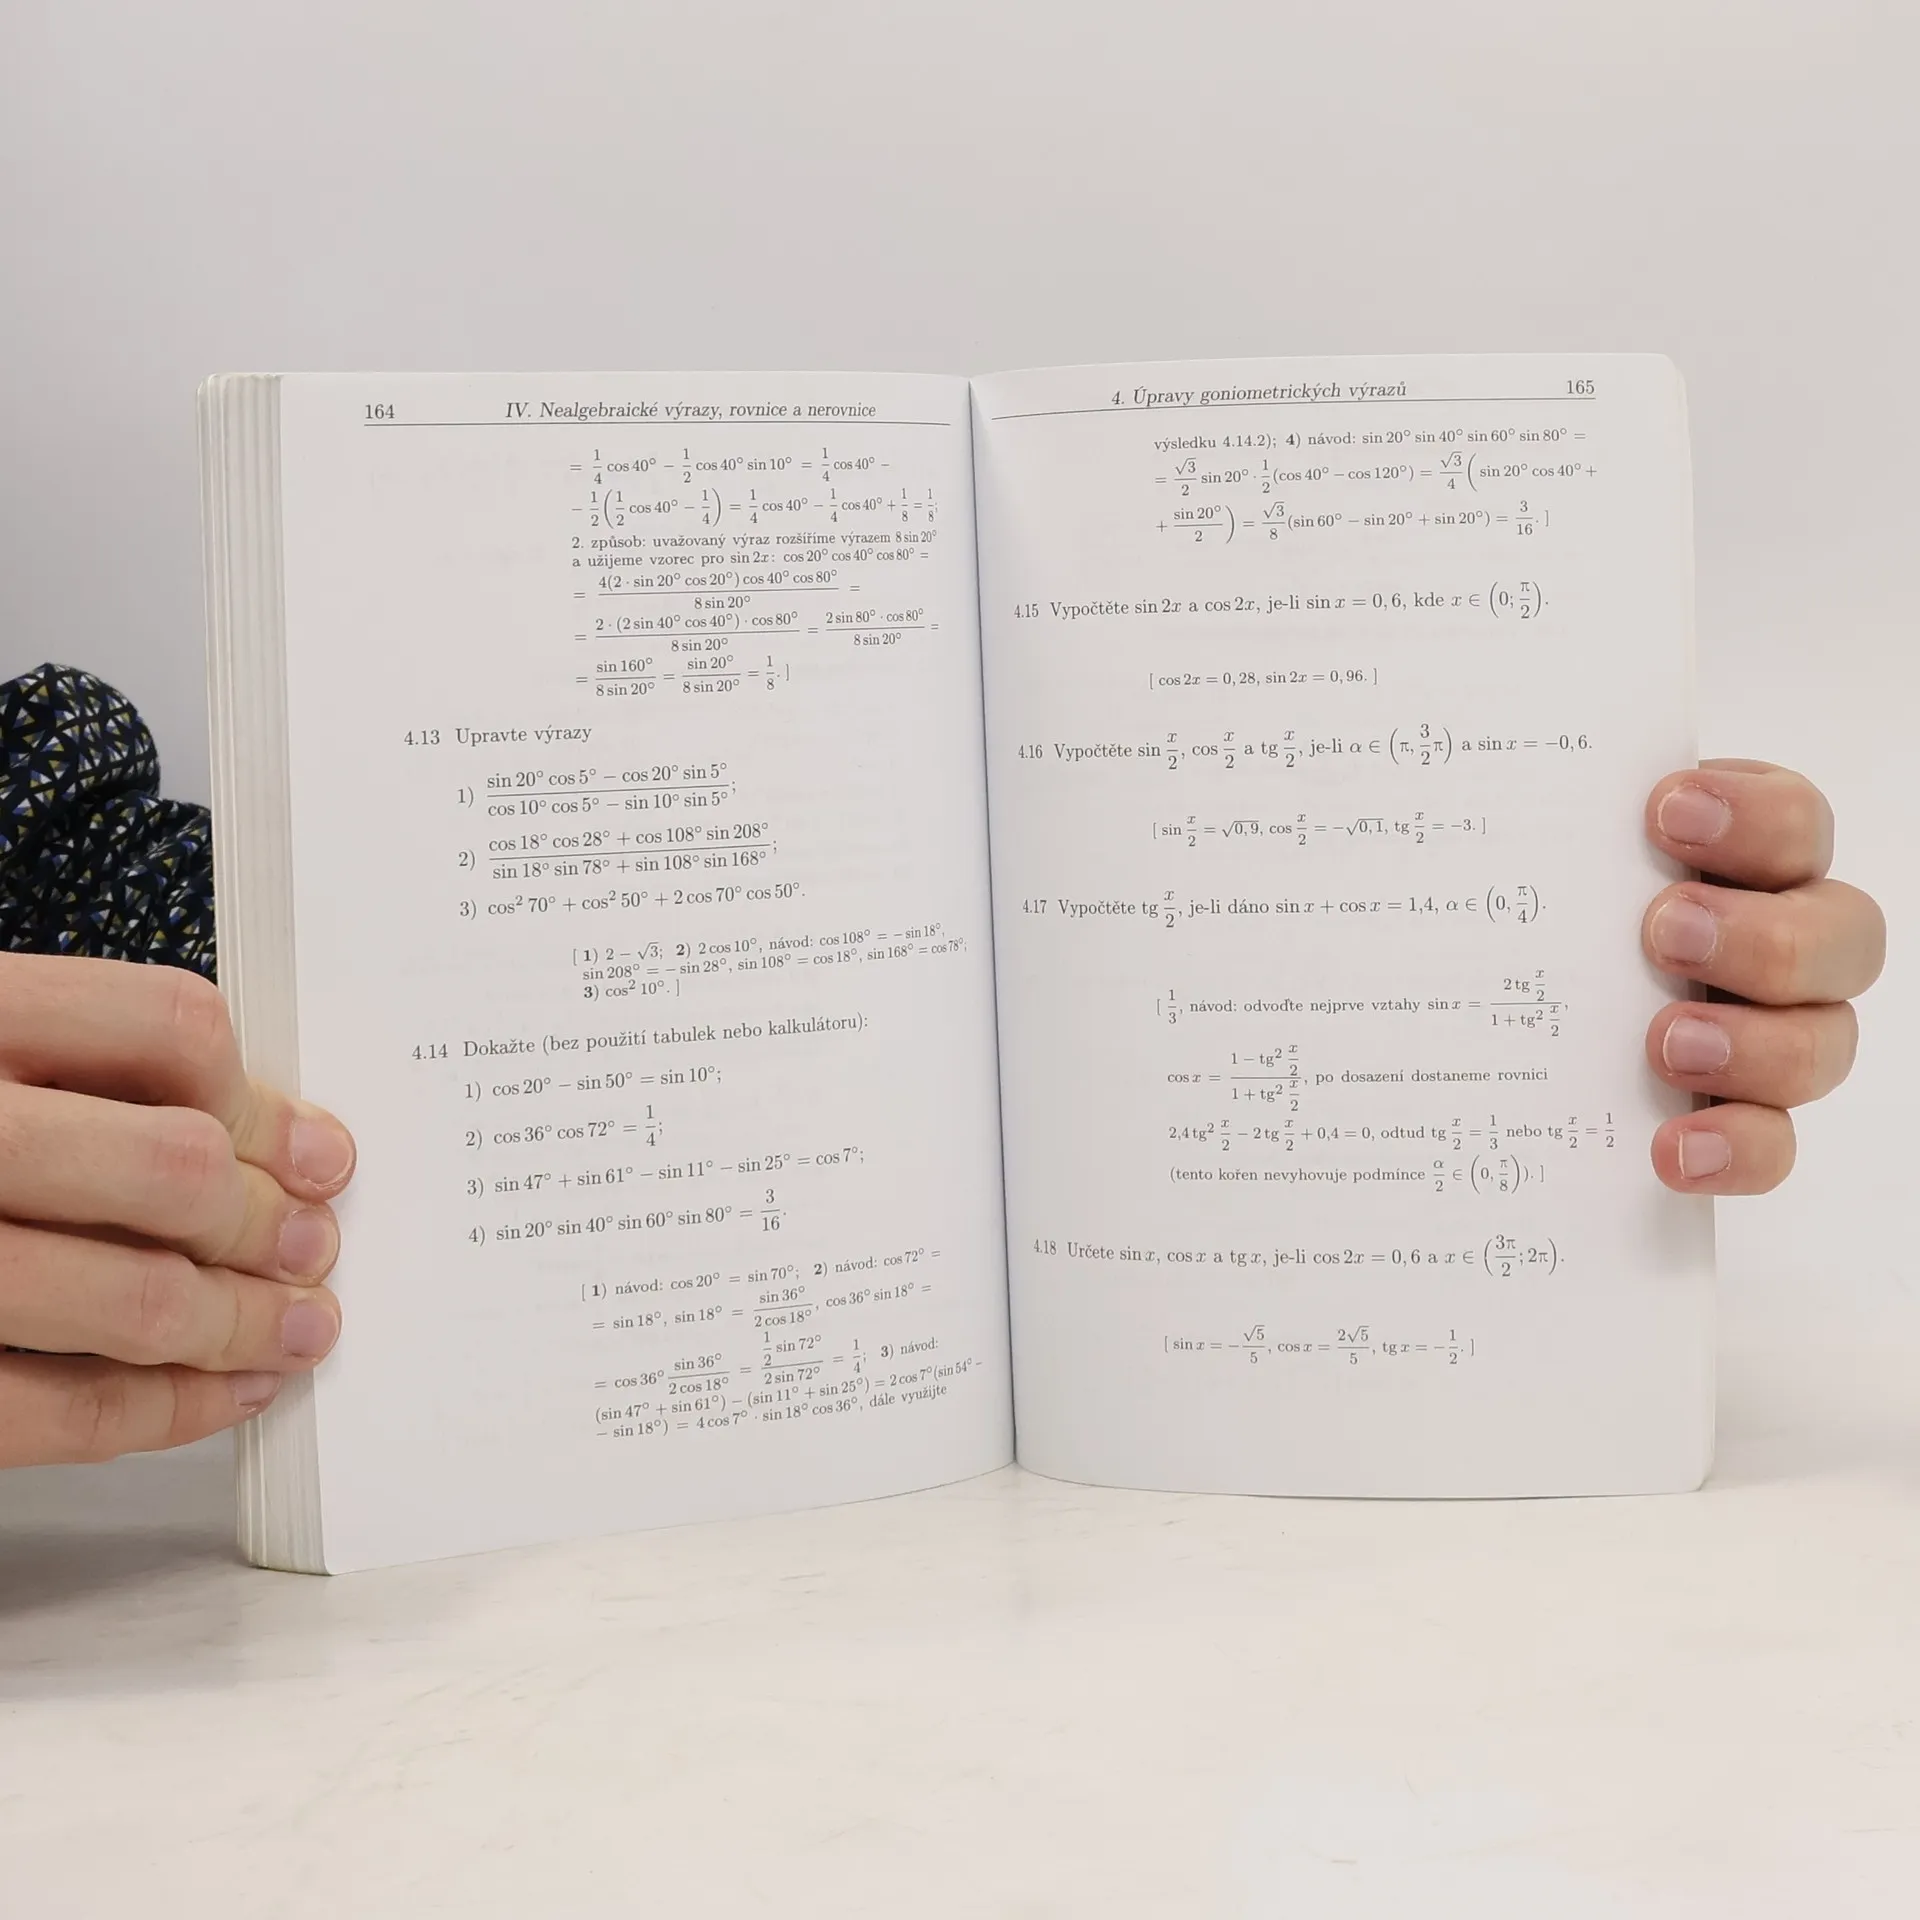 164 IV. Nealgebraické výrazy, rovnice a nerovnice
= 1/4 cos 40° − 1/2 cos 40° sin 10° = 1/4 cos 40° −
− 1/2 (1/2 cos 40° − 1/4) = 1/4 cos 40° − 1/4 cos 40° + 1/8 = 1/8;
2. způsob: uvažovaný výraz rozšíříme výrazem 8 sin 20°
a užijeme vzorec pro sin 2x: cos 20° cos 40° cos 80° =
= 4(2 · sin 20° cos 20°) cos 40° cos 80° / 8 sin 20° =
= 2 · (2 sin 40° cos 40°) · cos 80° / 8 sin 20° = 2 sin 80° · cos 80° / 8 sin 20° =
= sin 160° / 8 sin 20° = sin 20° / 8 sin 20° = 1/8. ]
4.13 Upravte výrazy
1) sin 20° cos 5° − cos 20° sin 5° / cos 10° cos 5° − sin 10° sin 5°;
2) cos 18° cos 28° + cos 108° sin 208° / sin 18° sin 78° + sin 108° sin 168°;
3) cos² 70° + cos² 50° + 2 cos 70° cos 50°.
[ 1) 2 − √3; 2) 2 cos 10°, návod: cos 108° = − sin 18°,
sin 208° = − sin 28°, sin 108° = cos 18°, sin 168° = cos 78°;
3) cos² 10°. ]
4.14 Dokažte (bez použití tabulek nebo kalkulátoru):
1) cos 20° − sin 50° = sin 10°;
2) cos 36° cos 72° = 1/4;
3) sin 47° + sin 61° − sin 11° − sin 25° = cos 7°;
4) sin 20° sin 40° sin 60° sin 80° = 3/16.
[ 1) návod: cos 20° = sin 70°; 2) návod: cos 72° =
= sin 18°, sin 18° = sin 36° / 2 cos 18°, cos 36° sin 18° =
= cos 36° sin 36° / 2 cos 18° = 1/2 sin 72° / 2 sin 72° = 1/4; 3) návod:
(sin 47° + sin 61°) − (sin 11° + sin 25°) = 2 cos 7°(sin 54° −
− sin 18°) = 4 cos 7° · sin 18° cos 36°, dále využijte
4. Úpravy goniometrických výrazů 165
výsledku 4.14.2); 4) návod: sin 20° sin 40° sin 60° sin 80° =
= √3/2 sin 20° · 1/2 (cos 40° − cos 120°) = √3/4 ( sin 20° cos 40° +
+ sin 20°/2 ) = √3/8 (sin 60° − sin 20° + sin 20°) = 3/16. ]
4.15 Vypočtěte sin 2x a cos 2x, je-li sin x = 0,6, kde x ∈ (0; π/2).
[ cos 2x = 0,28, sin 2x = 0,96. ]
4.16 Vypočtěte sin x/2, cos x/2 a tg x/2, je-li α ∈ (π, 3/2 π) a sin x = −0,6.
[ sin x/2 = √0,9, cos x/2 = −√0,1, tg x/2 = −3. ]
4.17 Vypočtěte tg x/2, je-li dáno sin x + cos x = 1,4, α ∈ (0, π/4).
[ 1/3, návod: odvoďte nejprve vztahy sin x = 2 tg x/2 / 1 + tg² x/2,
cos x = 1 − tg² x/2 / 1 + tg² x/2, po dosazení dostaneme rovnici
2,4 tg² x/2 − 2 tg x/2 + 0,4 = 0, odtud tg x/2 = 1/3 nebo tg x/2 = 1/2
(tento kořen nevyhovuje podmínce α/2 ∈ (0, π/8)). ]
4.18 Určete sin x, cos x a tg x, je-li cos 2x = 0,6 a x ∈ (3π/2; 2π).
[ sin x = −√5/5, cos x = 2√5/5, tg x = −1/2. ]